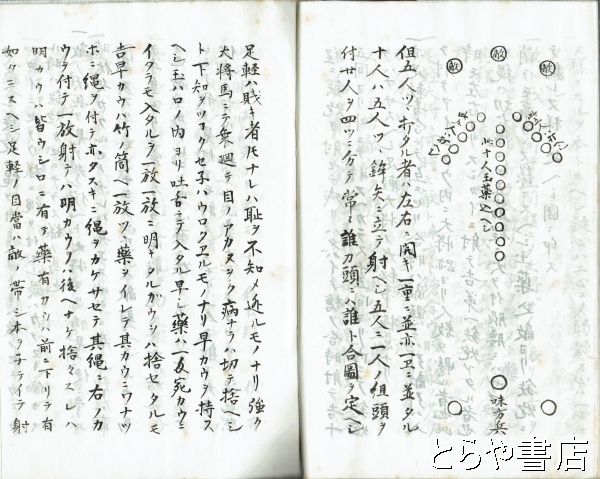 敵
敵
敵
此十人玉薬込ヘシ
味方兵
但五人ツヽ打タル者ハ左右ニ開キ一重ニ並亦一卫ニ並タル
十人ハ五人ツヽ鉾矢ニ立テ射ヘシ五人ニ一人ノ組頭ヲ
付廿人ヲ四ツニ分テ常ニ誰カ頭ニハ誰ト合圖ヲ定ヘシ
足軽ハ賤キ者ドモナレハ恥ヲ不知メ逃ルモノナリ強ク
大将馬ニテ乗廻テ目ノアカヌヤク病ナラハ切テ捨ヘシ
ト下知ヲツヨクセ子ハウロタユルモノナリ早カウヲ持ス
ヘシ玉ハロノ内ヨリ吐出シテ入タル早シ薬ハ一夜死カウニ
イタラモ入タルヲ一放一放ニ明キタルガウシハ捨セタルモ
吉早カウハ竹ノ筒ヘ一放ツヽ薬ヲイレテ其カウニワナツ
ホニ縄ヲ付テ亦タスキニ縄ヲカケサセテ其縄ニ右ノカ
ウヲ付テ一放射テハ明カウヲハ後ヘナゲ捨々スレハ
明カウハ皆ウシロニ有ヲ薬有カウハ前ニ下リテ有
如クニスヘシ足軽ノ目當ハ敵ノ帯シ本ヲ子ライテ射
とらや書店